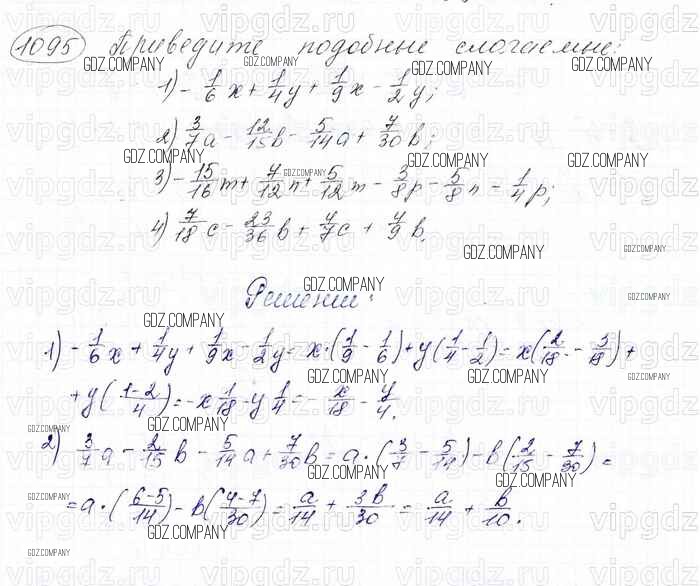 1095 Приведите подобные слагаемые:
1) - 1/6 x + 1/4 y + 1/9 x - 1/2 y;
2) 3/7 a - 12/15 b - 5/14 a + 7/30 b;
3) - 15/16 m + 7/12 n + 5/12 m - 3/8 p - 5/8 n - 1/4 p;
4) 7/18 c - 23/36 b + 4/7 c + 4/9 b.
Решение:
1) - 1/6 x + 1/4 y + 1/9 x - 1/2 y = x·(1/9 - 1/6) + y(1/4 - 1/2) = x(2/18 - 3/18) +
+ y((1-2)/4) = - x 1/18 - y 1/4 = - x/18 - y/4.
2) 3/7 a - 2/15 b - 5/14 a + 7/30 b = a·(3/7 - 5/14) - b(2/15 - 7/30) =
= a·((6-5)/14) - b((4-7)/30) = a/14 + 3b/30 = a/14 + b/10.
GDZ.COMPANY
vipgdz.ru